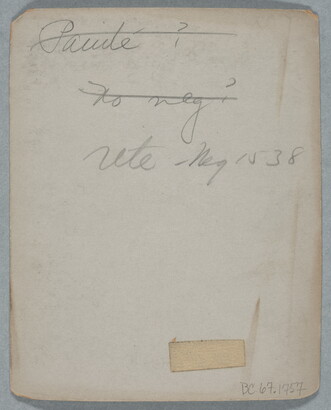 Paiute ?
No neg?
Ute - Neg 1538
BC 69.1957